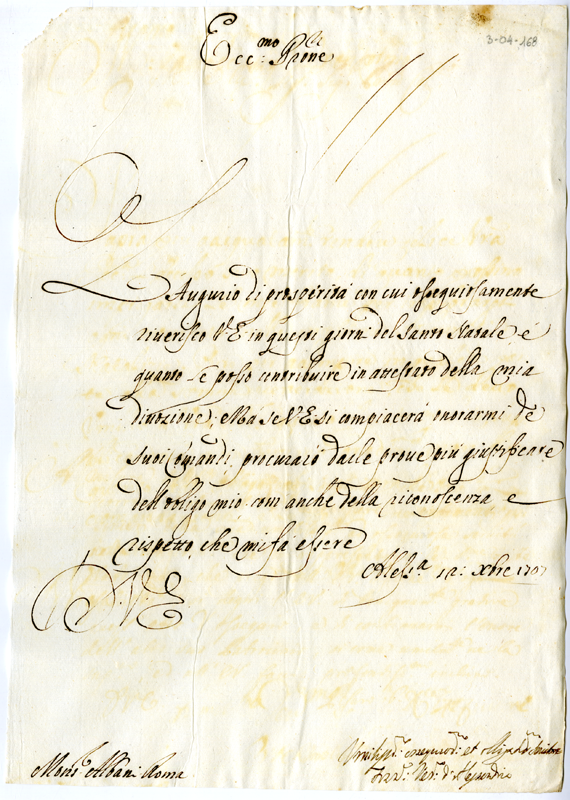 3-04-168
Ecc:mo Prone
L'Augurio di prosperità con cui ossequiosamente
riverisco V.E in questi giorni del Santo Natale, é
quanto posso contribuire in attestato della mia
divozione; Ma se V.E si compiacerá onorarmi de
suoi comandi procuraró darle prove piú giustificate
dell'obligo mio, com'anche della riconoscenza e
rispetto, che mi fá essere
Aless.a 12: Xbre 1707
D.V.E
Mons.r Albani Roma